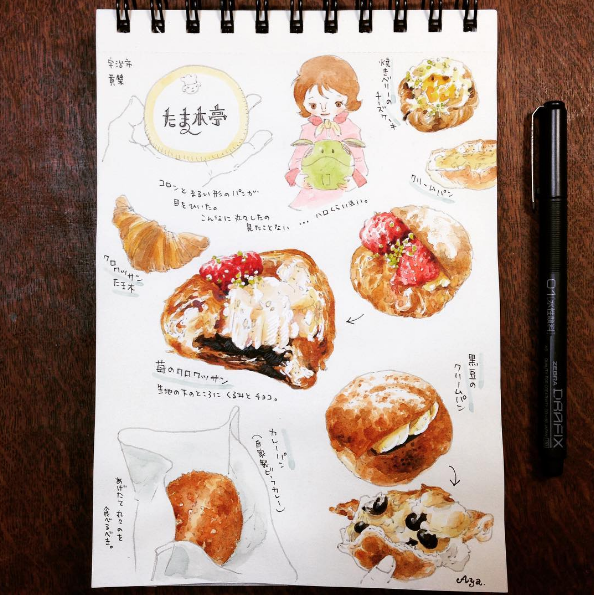 宇治市
黄檗
たま木亭
コロンとまるい形のパンが
目をひいた。
こんなに丸々したの
見たことない … ハロくらい丸い。
焼きベリーの
チーズケーキ
クリームパン
クロワッサン
たま木
苺のクロワッサン
生地の下のところに くるみと チョコ。
黒豆の
クリームパン
カレーパン
(自家製ビーフカレー)
あげたて熱々のを
食べるべき。
Aya.
0.1
ZEBRA DRAFIX